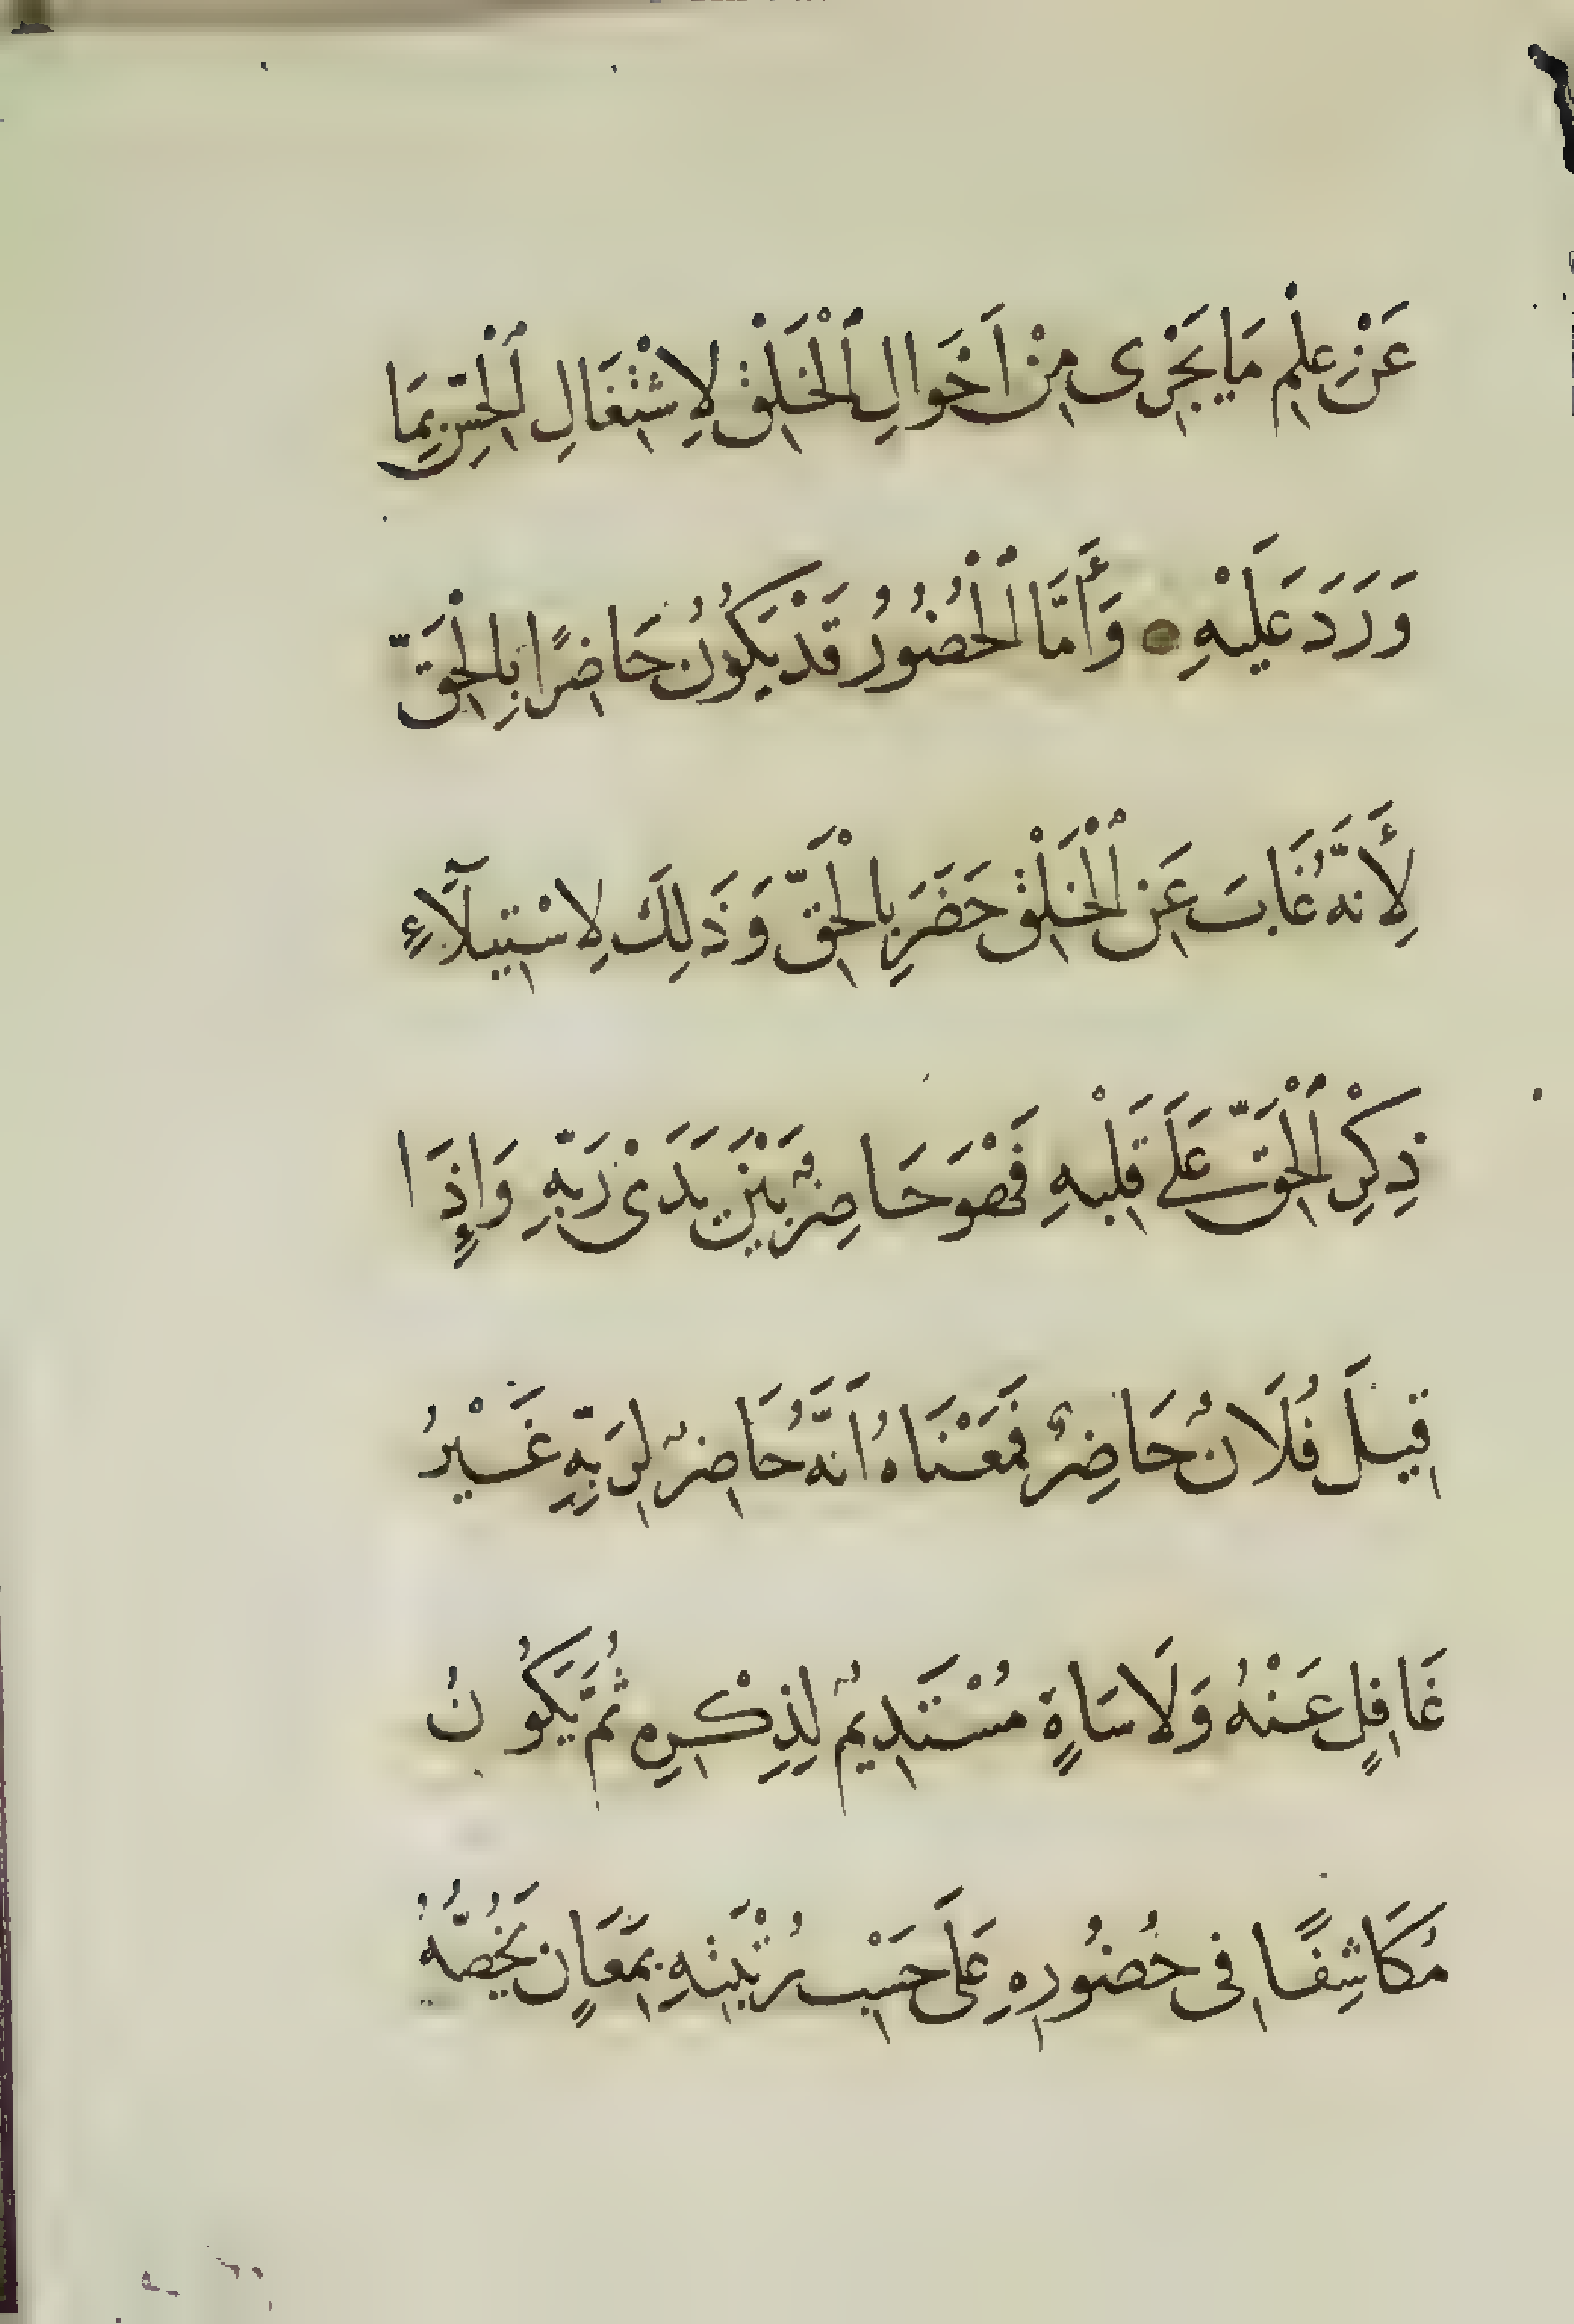 عَنْ عِلْمِ مَا يَجْرِى مِنْ اَحْوَالِ ٱلْخَلْقِ لِاِشْتِغَالِ ٱلْحِسِّ بِمَا
وَرَدَ عَلَيْهِ وَأَمَّا ٱلْحُضُورُ قَدْ يَكُونُ حَاضِرًا بِالْحَقِّ
لِأَنَّهُ غَابَ عَنِ ٱلْخَلْقِ حَضَرَ بِالْحَقِّ وَذَلِكَ لِاسْتِيلَآءِ
ذِكْرِ ٱلْحَقِّ عَلَى قَلْبِهِ فَهْوَ حَاضِرٌ بَيْنَ يَدَىْ رَبِّهِ وَاِذَا
قِيلَ فُلَانٌ حَاضِرٌ فَمَعْنَاهُ اَنَّهُ حَاضِرٌ لِرَبِّهِ غَيْرُ
غَافِلٍ عَنْهُ وَلَا سَاهٍ مُسْتَدِيمٌ لِذِكْرِهِ ثُمَّ يَكُونُ
مُكَاشِفًا فِى حُضُورِهِ عَلَى حَسْبِ رُتْبَتِهِ بِمَعَانٍ يَخُصُّهُ